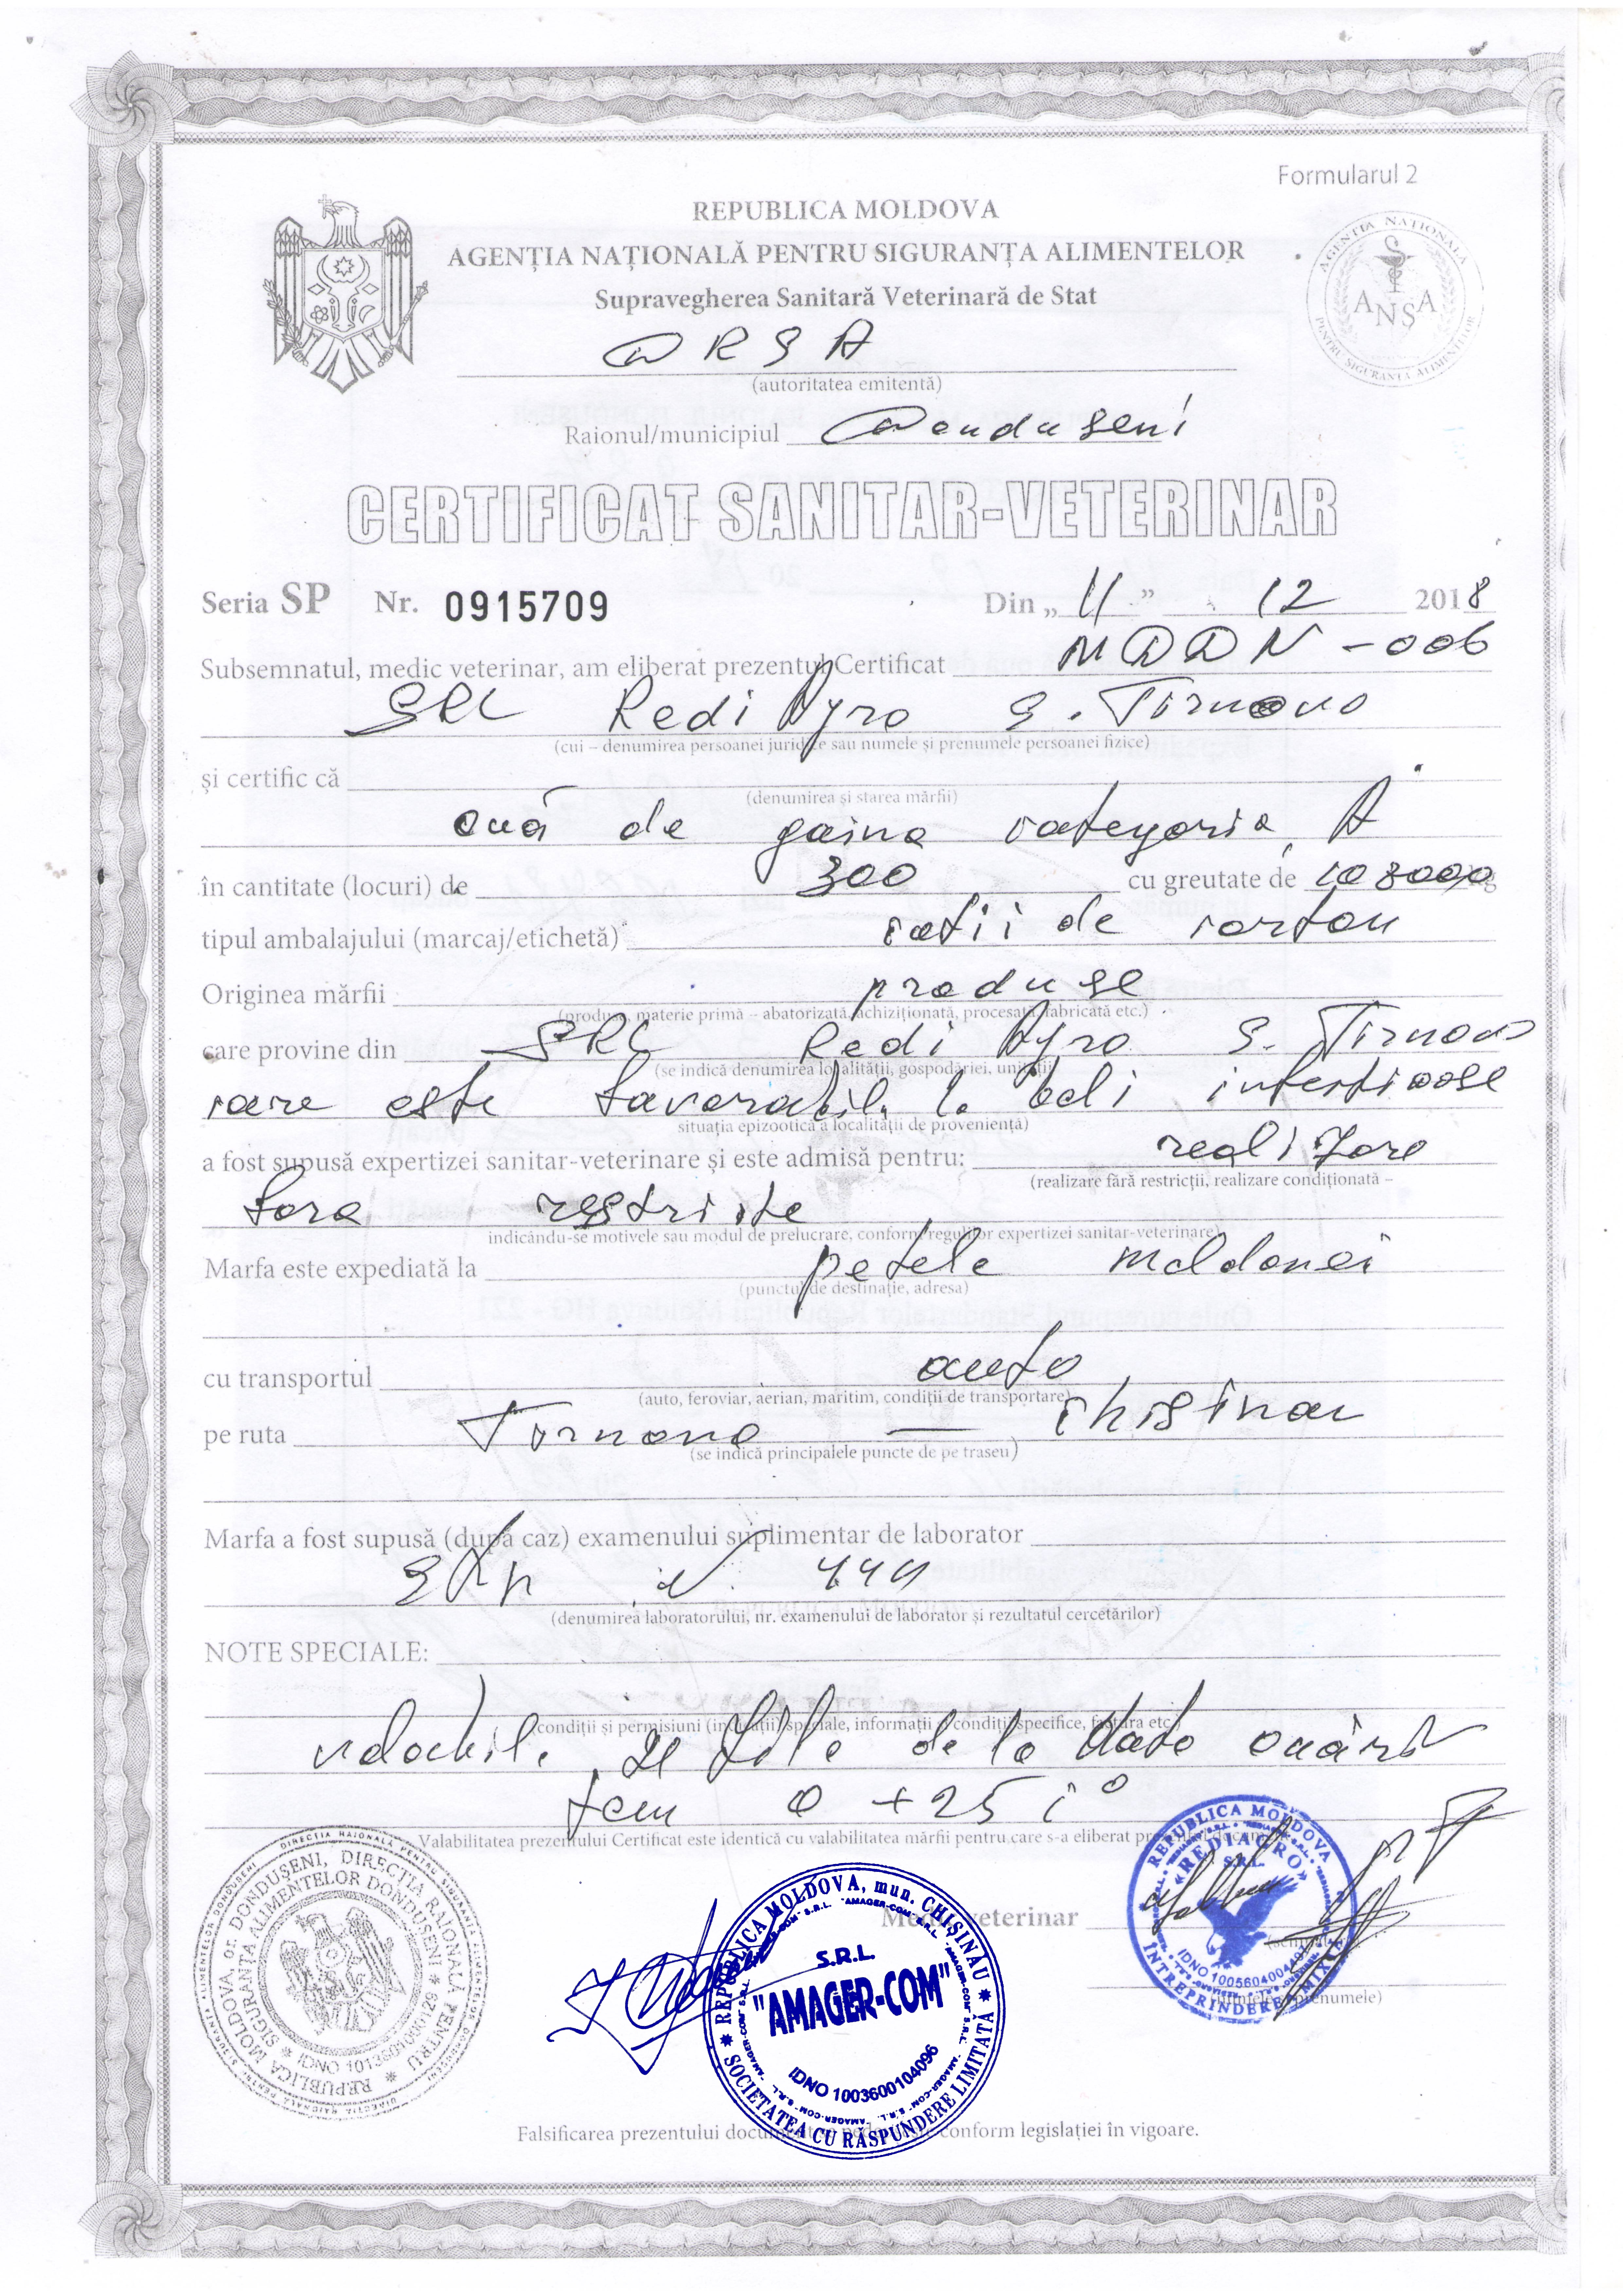 Formularul 2
REPUBLICA MOLDOVA
AGENȚIA NAȚIONALĂ PENTRU SIGURANȚA ALIMENTELOR
Supravegherea Sanitară Veterinară de Stat
AGENȚIA NAȚIONALĂ PENTRU SIGURANȚA ALIMENTELOR
ANSA
DRSA
(autoritatea emitentă)
Raionul/municipiul Donduseni
CERTIFICAT SANITAR-VETERINAR
Seria SP Nr. 0915709 Din „ 11 ” 12 2018
Subsemnatul, medic veterinar, am eliberat prezentul Certificat MDDN-006
SRL Redi Agro S. Tirnova
(cui – denumirea persoanei juridice sau numele și prenumele persoanei fizice)
și certific că
(denumirea și starea mărfii)
ouă de gaina categoria A
în cantitate (locuri) de 300 cu greutate de 108000
tipul ambalajului (marcaj/etichetă) cutii de carton
Originea mărfii produse
(produse, materie primă – abatorizată, achiziționată, procesată, fabricată etc.)
care provine din SRL Redi Agro S. Tirnova
(se indică denumirea localității, gospodăriei, unității
care este favorabil la boli infectioase
situația epizootică a localității de proveniență)
a fost supusă expertizei sanitar-veterinare și este admisă pentru: realizare
(realizare fără restricții, realizare condiționată –
fara restricte
indicându-se motivele sau modul de prelucrare, conform regulilor expertizei sanitar-veterinare)
Marfa este expediată la petele Moldovei
(punctul de destinație, adresa)
cu transportul auto
(auto, feroviar, aerian, maritim, condiții de transportare)
pe ruta Tirnova — Chisinau
(se indică principalele puncte de pe traseu)
Marfa a fost supusă (după caz) examenului suplimentar de laborator
(denumirea laboratorului, nr. examenului de laborator și rezultatul cercetărilor)
NOTE SPECIALE:
(condiții și permisiuni (indicații) speciale, informații și condiții specifice, factura etc.)
zile de la data ouării
tem 0 +25 C°
Valabilitatea prezentului Certificat este identică cu valabilitatea mărfii pentru care s-a eliberat prezentul document
Medic veterinar
(numele, prenumele)
REPUBLICA MOLDOVA, or. DONDUȘENI, DIRECȚIA RAIONALĂ PENTRU SIGURANȚA ALIMENTELOR DONDUȘENI * IDNO 1013601000129 *
REPUBLICA MOLDOVA, mun. CHIȘINĂU * SOCIETATEA CU RĂSPUNDERE LIMITATĂ *
S.R.L.
"AMAGER-COM"
IDNO 1003600104096
REPUBLICA MOLDOVA
«REDIAGRO»
S.R.L.
ÎNTREPRINDERE MIXTĂ
Falsificarea prezentului document se pedepsește conform legislației în vigoare.